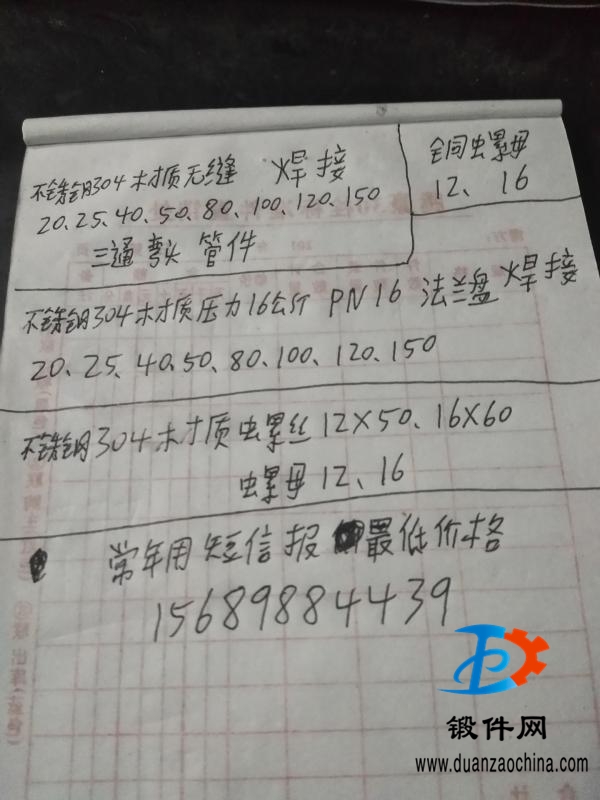 不锈钢304材质无缝 焊接
20、25、40、50、80、100、120、150
三通弯头 管件
铜螺母
12、16
不锈钢304材质压力16公斤 PN16 法兰盘焊接
20、25、40、50、80、100、120、150
不锈钢304材质螺丝12X50、16X60
螺母12、16
常年用 短信报最低价格
15689884439
锻件网
www.duanzaochina.com